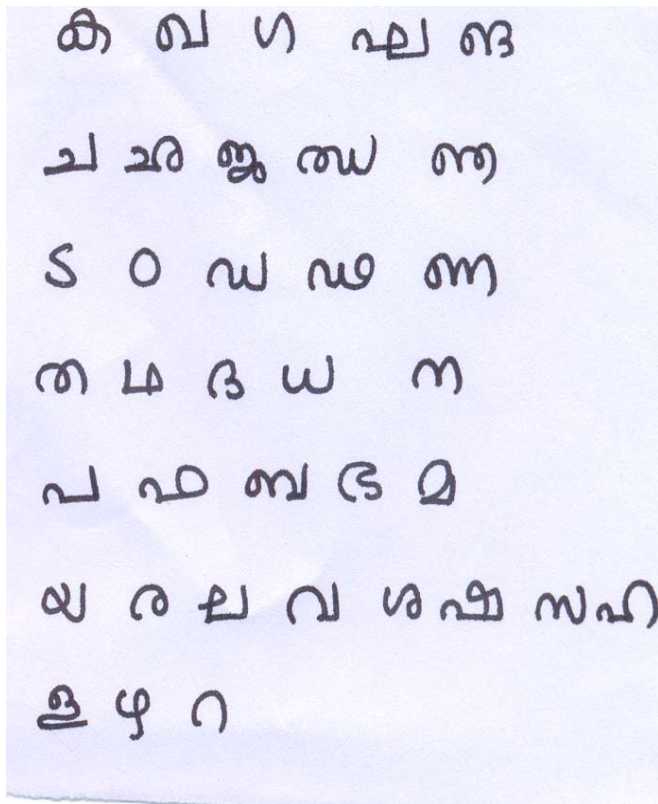 ക ഖ ഗ ഘ ങ
ച ഛ ജ ഝ ഞ
ട ഠ ഡ ഢ ണ
ത ഥ ദ ധ ന
പ ഫ ബ ഭ മ
യ ര ല വ ശ ഷ സ ഹ
ള ഴ റ